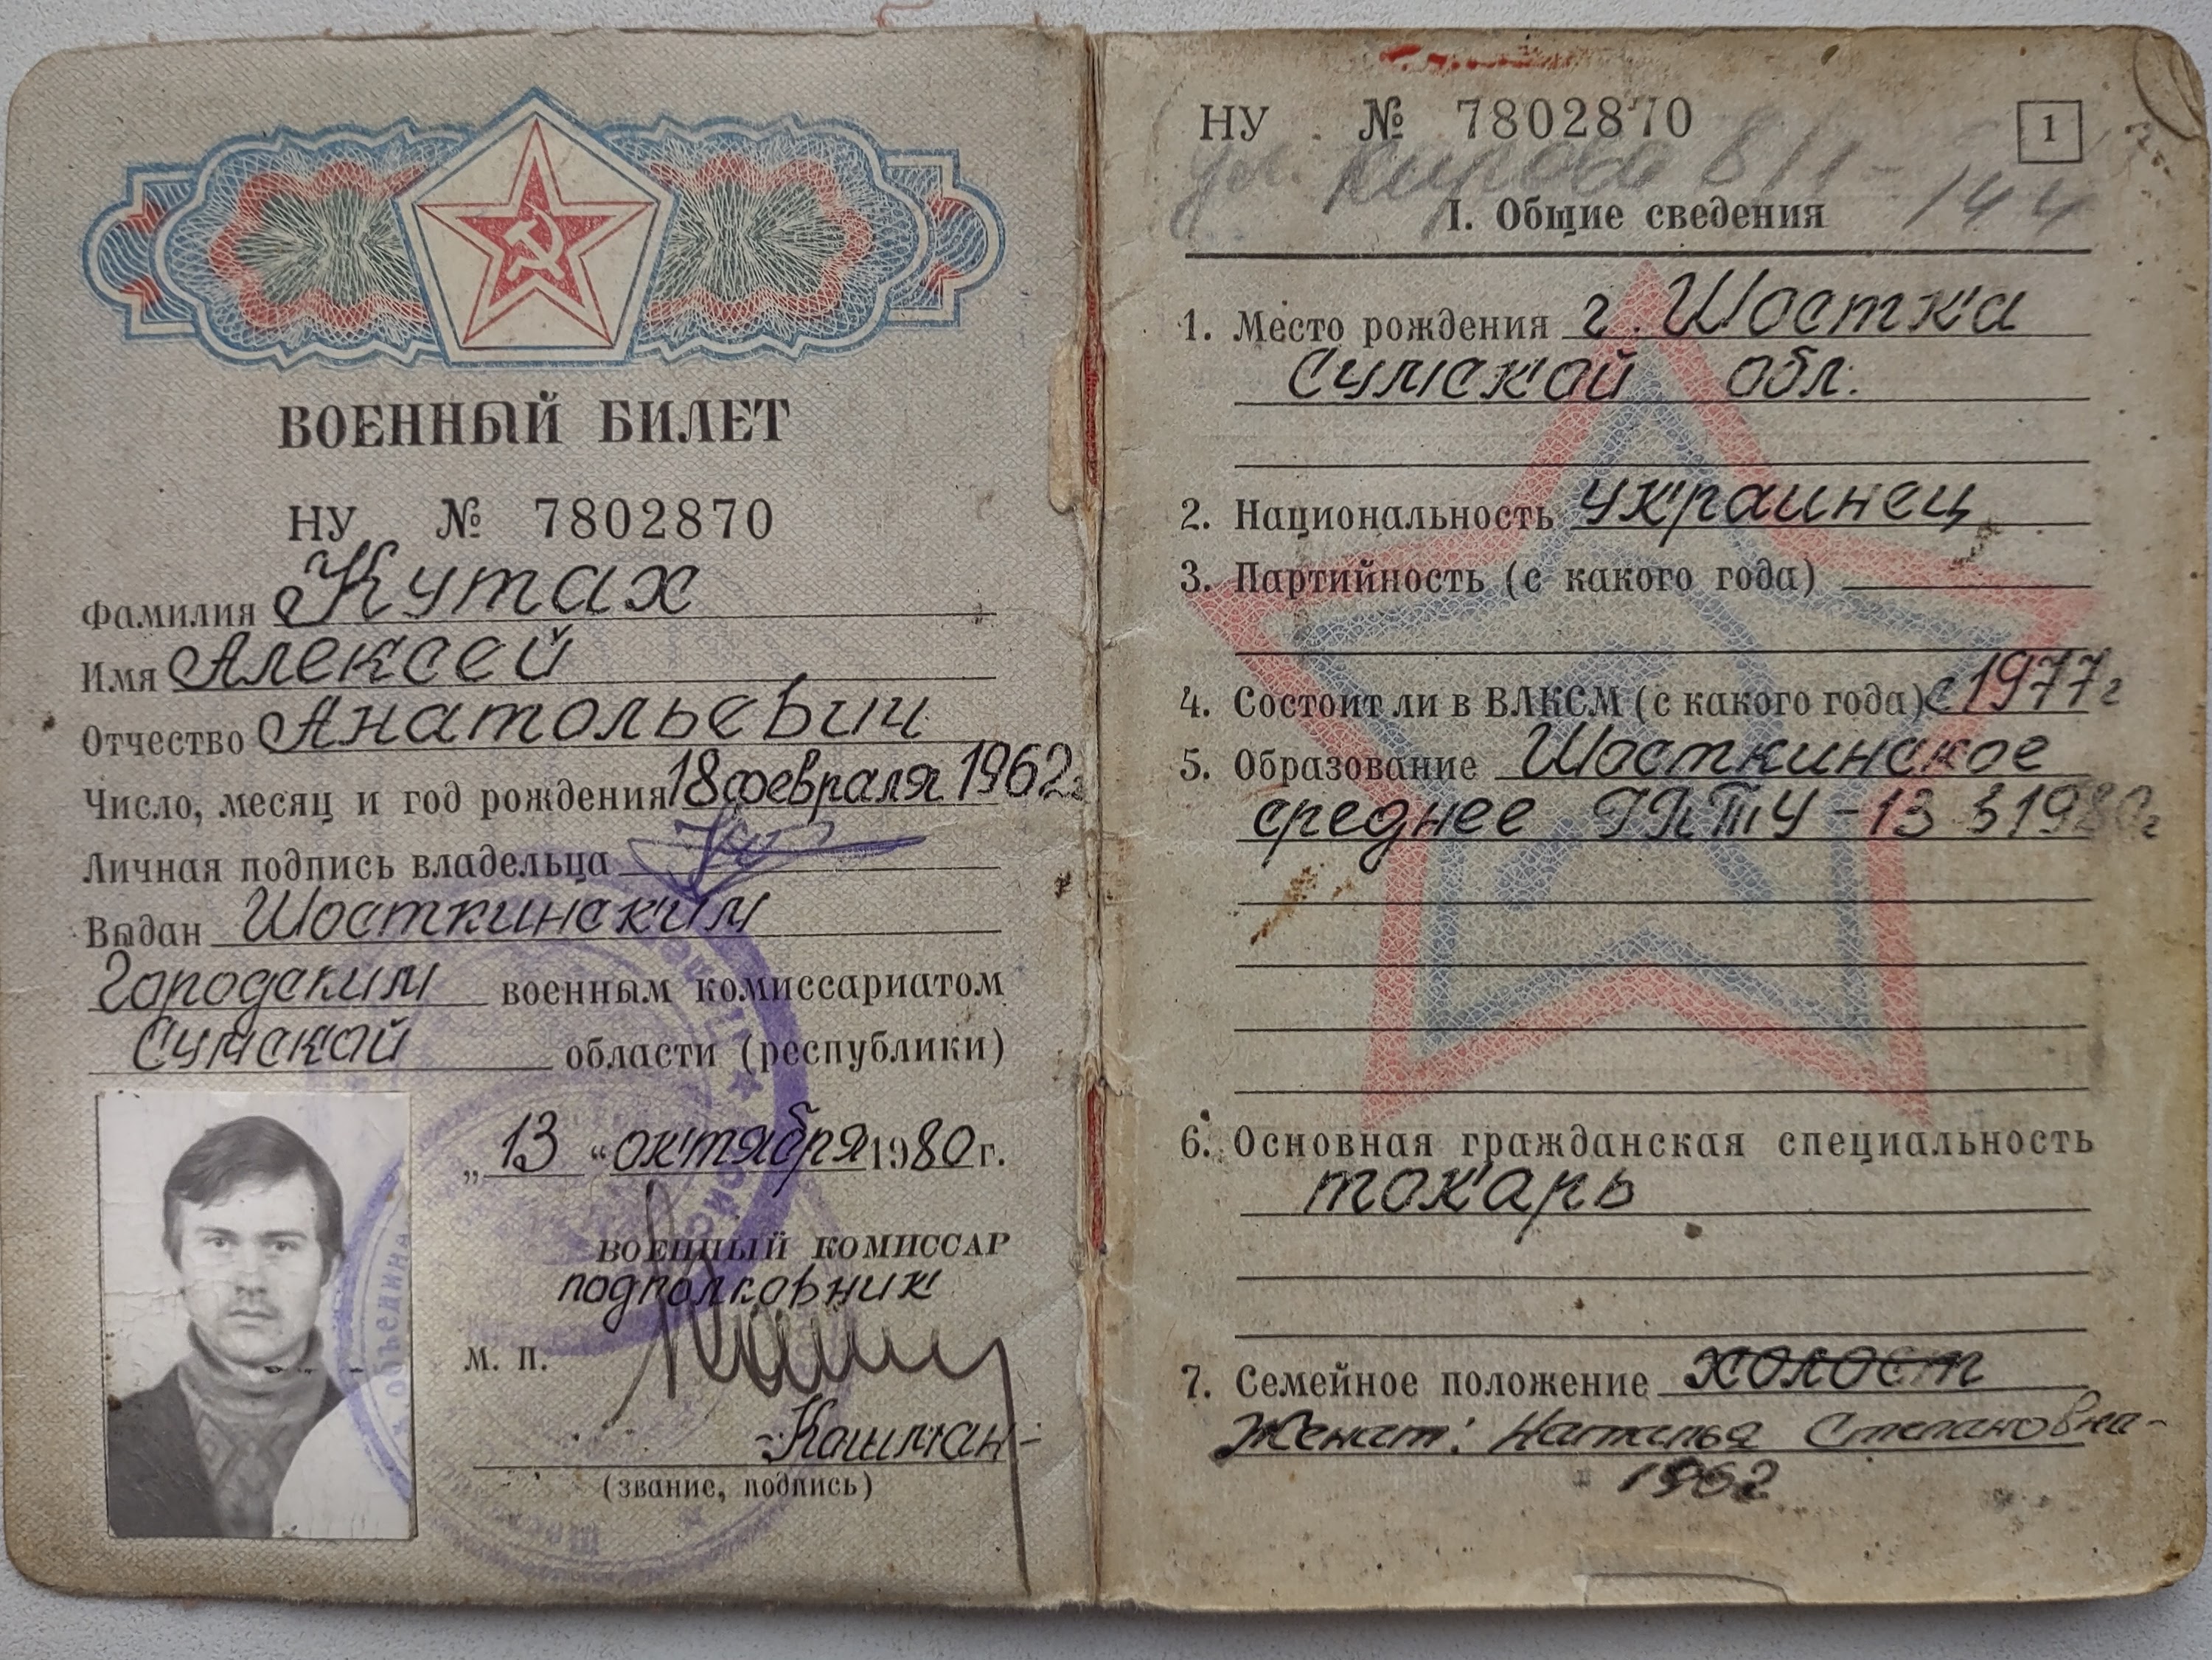 ВОЕННЫЙ БИЛЕТ
НУ № 7802870
Фамилия Кутах
Имя Алексей
Отчество Анатольевич
Число, месяц и год рождения 18 февраля 1962г
Личная подпись владельца
Выдан Шосткинским
Городским военным комиссариатом
Сумской области (республики)
„13“ октября 1980 г.
ВОЕННЫЙ КОМИССАР
подполковник
М. П.
-Кошман-
(звание, подпись)
НУ № 7802870
1
ул. Кирова 8/1-144
I. Общие сведения
1. Место рождения г. Шостка
Сумской обл.
2. Национальность украинец
3. Партийность (с какого года)
4. Состоит ли в ВЛКСМ (с какого года) с 1977г
5. Образование Шосткинское
среднее ГПТУ-13 в 1980г
6. Основная гражданская специальность
токарь
7. Семейное положение холост
Женат: Наталья Степановна-
1962